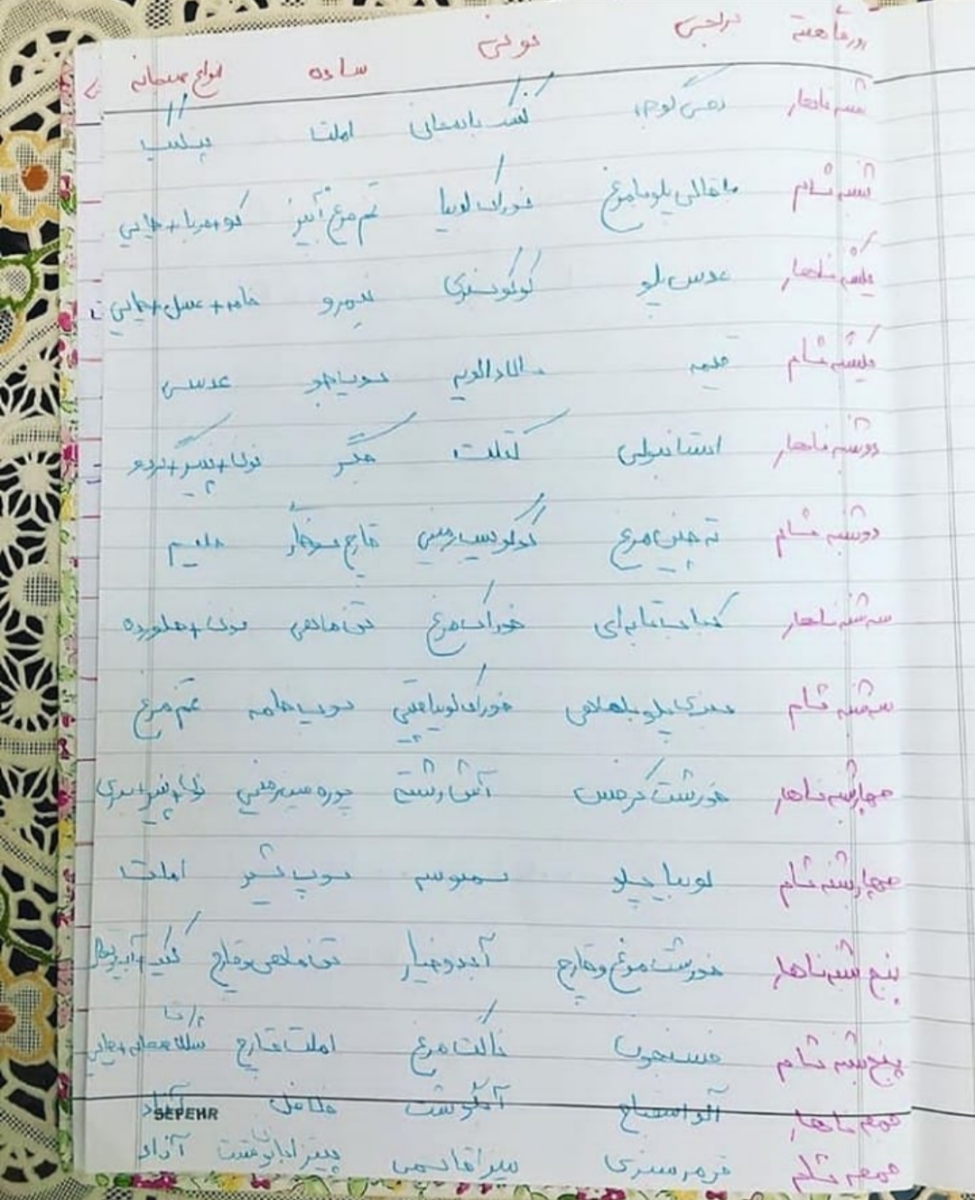 روز هفته برنجی نونی ساده انواع صبحانه
شنبه ناهار دمی گوجه کشک بادمجان املت پنکیک
شنبه شام باقالی پلو با مرغ خوراک لوبیا تخم مرغ آبپز کره + مربا + چایی
یکشنبه ناهار عدس پلو کوکو سبزی نیمرو خامه + عسل + چایی
یکشنبه شام قیمه سالاد الویه سوپ جو عدسی
دوشنبه ناهار استانبولی کتلت جگر نون + پنیر + گردو
دوشنبه شام ته چین مرغ کوکو سیب زمینی قارچ سوخاری حلیم
سه شنبه ناهار کباب تابه ای خوراک مرغ تن ماهی نون + حلوارده
سه شنبه شام سبزی پلو با ماهی خوراک لوبیا چیتی سوپ خامه تخم مرغ
چهارشنبه ناهار خورشت کرفس آش رشته پوره سیب زمینی نون + پنیر + سبزی
چهارشنبه شام لوبیا پلو سمبوسه سوپ شیر املت
پنج شنبه ناهار خورشت مرغ و قارچ آبدوخیار تن ماهی و قارچ کیک + آب پرتقال
پنج شنبه شام فسنجون ناگت مرغ املت قارچ صبحانه + چایی
جمعه ناهار آلو اسفناج آبگوشت فلافل آزاد
SEPEHR
جمعه شام قرمه سبزی میرزا قاسمی پیتزا آزاد